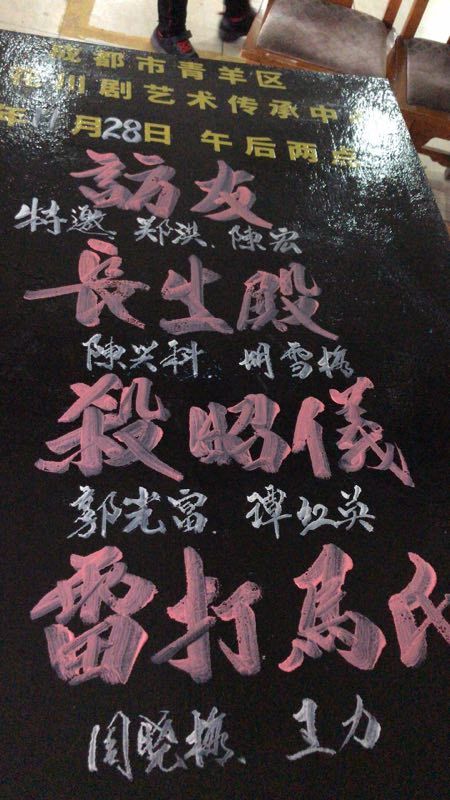 成都市青羊区
川剧艺术传承中
年11月28日 午后两点
訪友
特邀 郑洪 陳宏
長生殿
陳兴科 胡雪梅
殺昭儀
郭光富 譚红英
雷打馬氏
周晓梅 王力